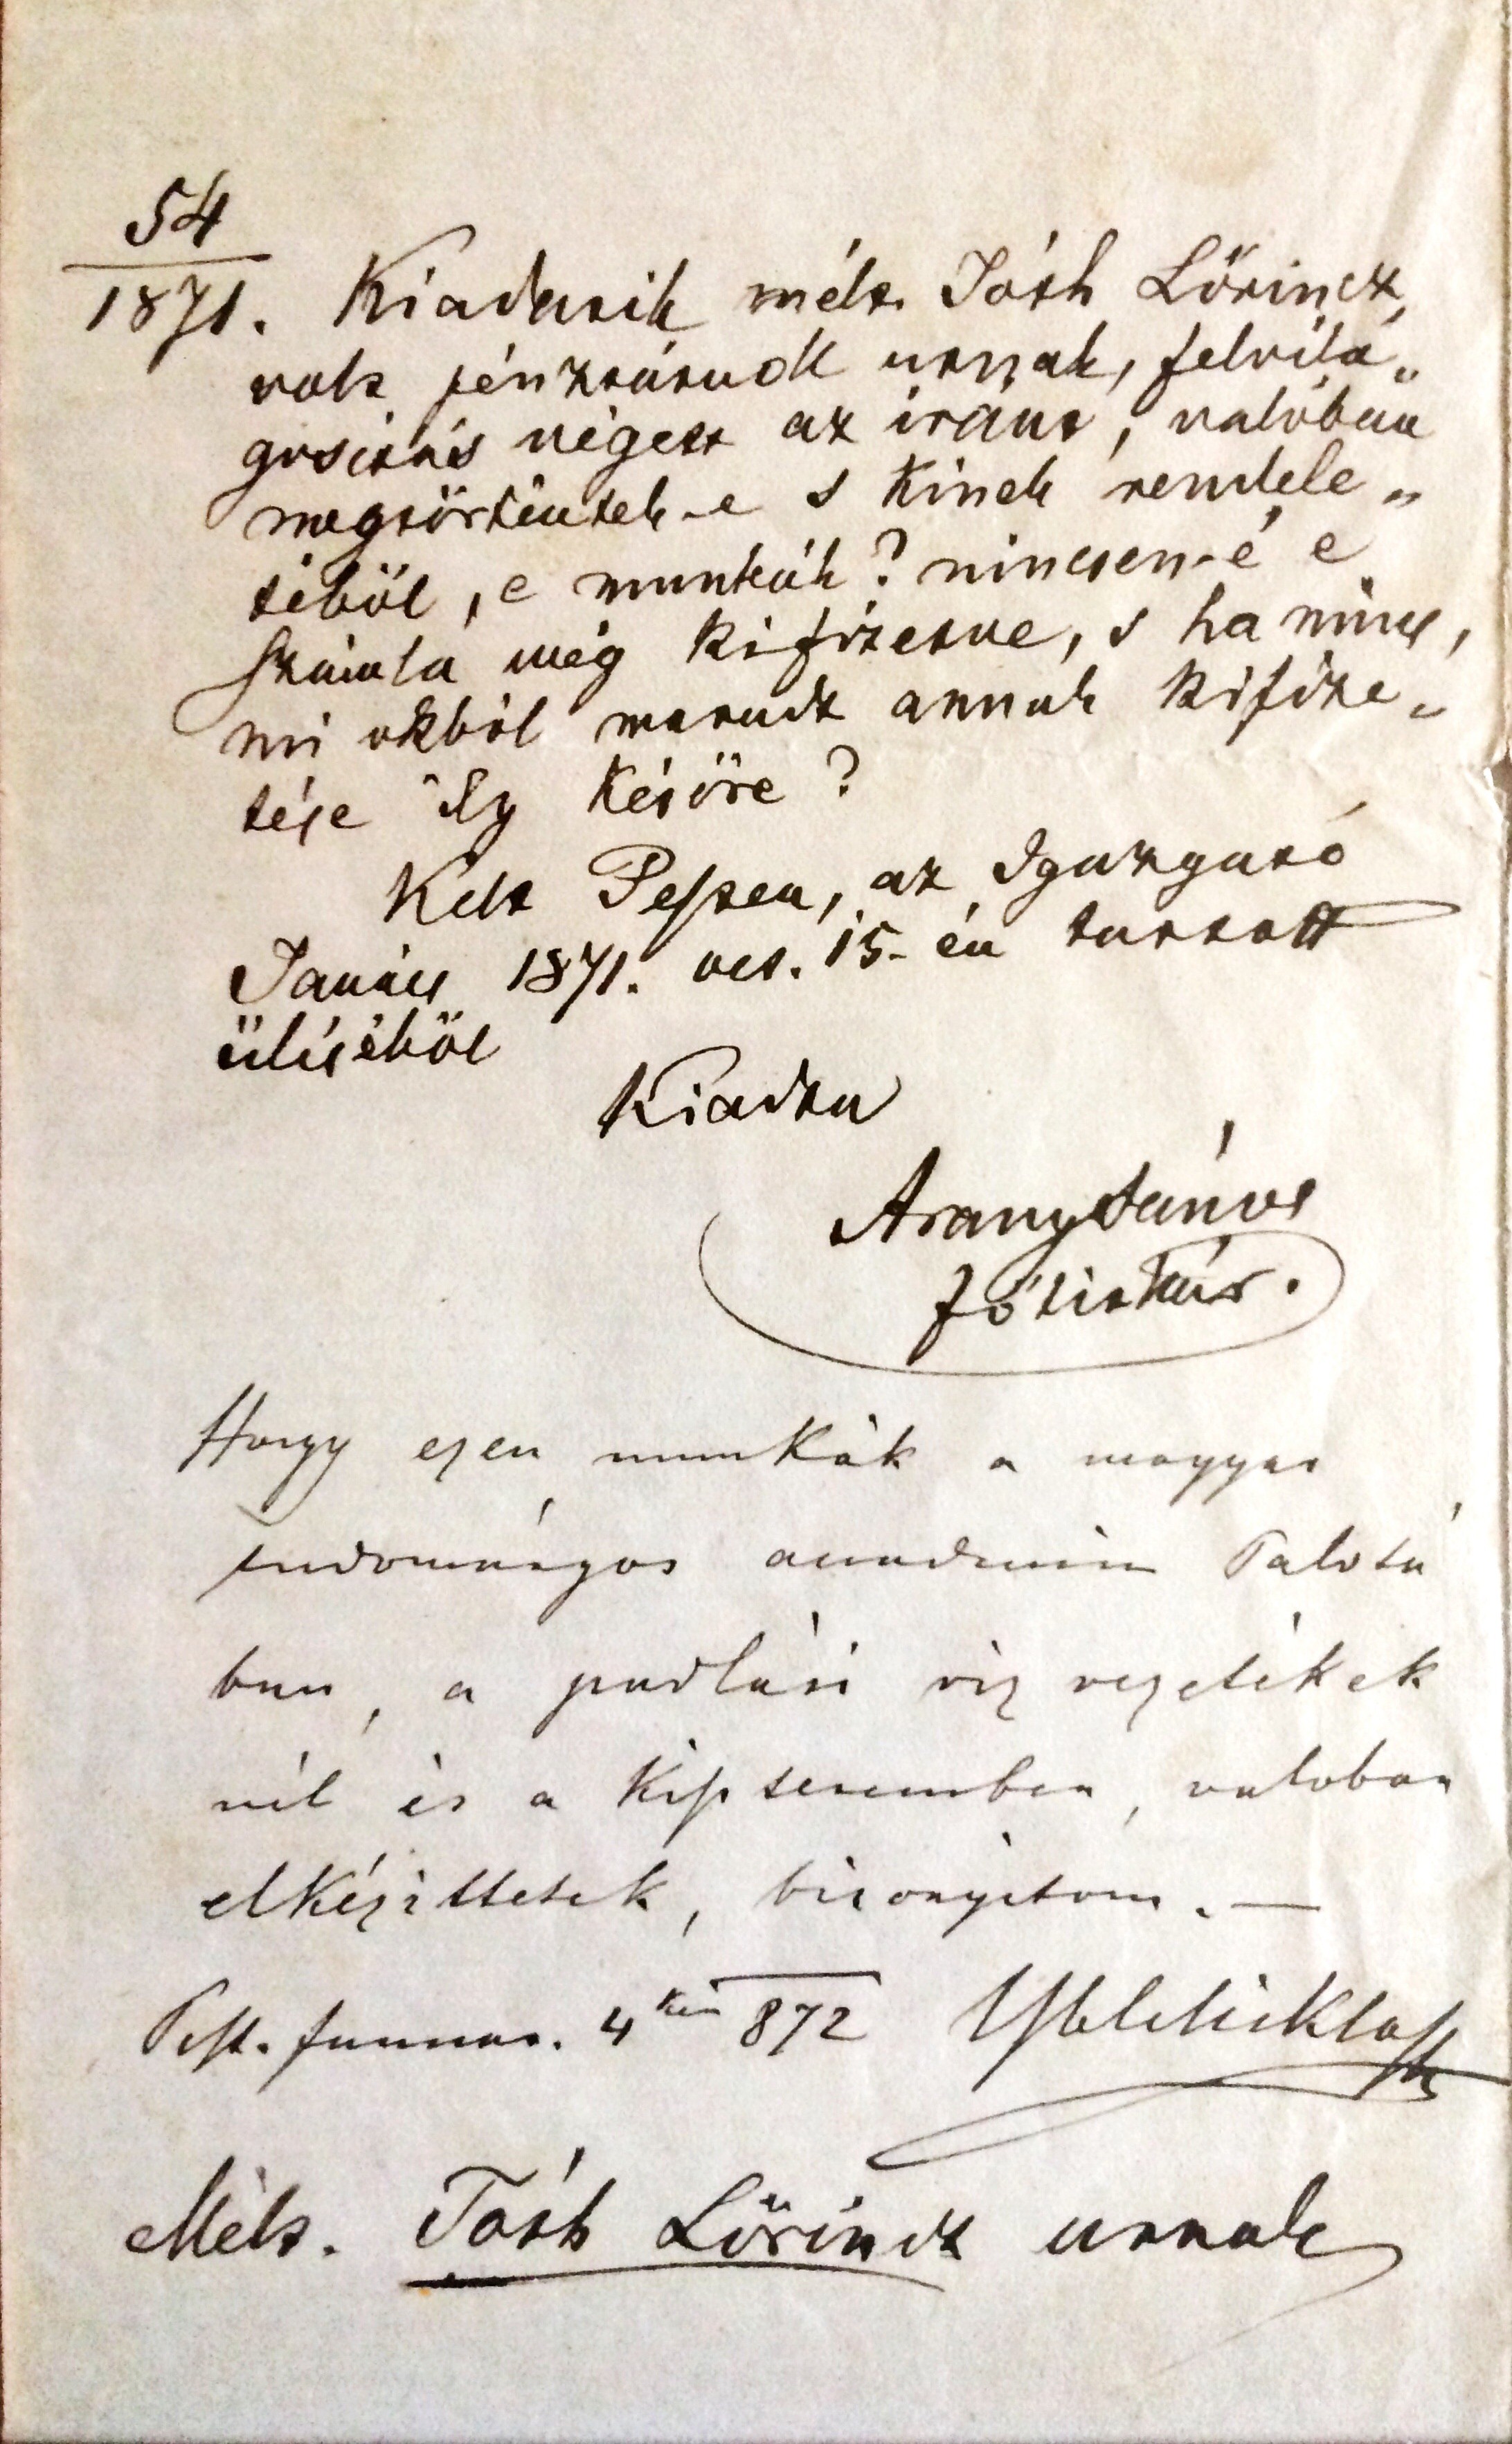 54
1871. Kiadatik mélt. Tóth Lőrincz,
volt pénztárnok urnak, felvilá„
gosítás végett az iránt, valóban
megtörténtek-e s kinek rendele„
téből, e munkák? nincsen-é e
számla még kifizetve, s ha nincs,
mi okból maradt annak kifize„
tése ily későre?
Kelt Pesten, az Igazgató
Tanács 1871. oct. 15-én tartott
üléséből
Kiadta
Arany János
főtitkár.
Hogy ezen munkák a magyar
tudományos academia Palotá
ban, a padlási viz vezetékek
nél és a Képteremben, valoban
elkészittetek, bizonyitom. —
Pest. Januar. 4 kén 872 Ybl Miklós
Mélt. Tóth Lőrincz urnak